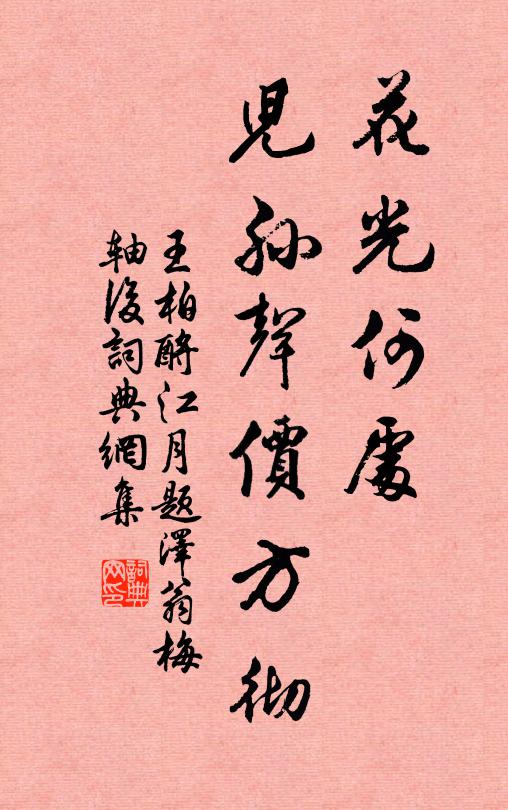 花光何處
兒孫聲價方彻
王柏酹江月题澤翁梅
轴後詞典網集
詞典
网印